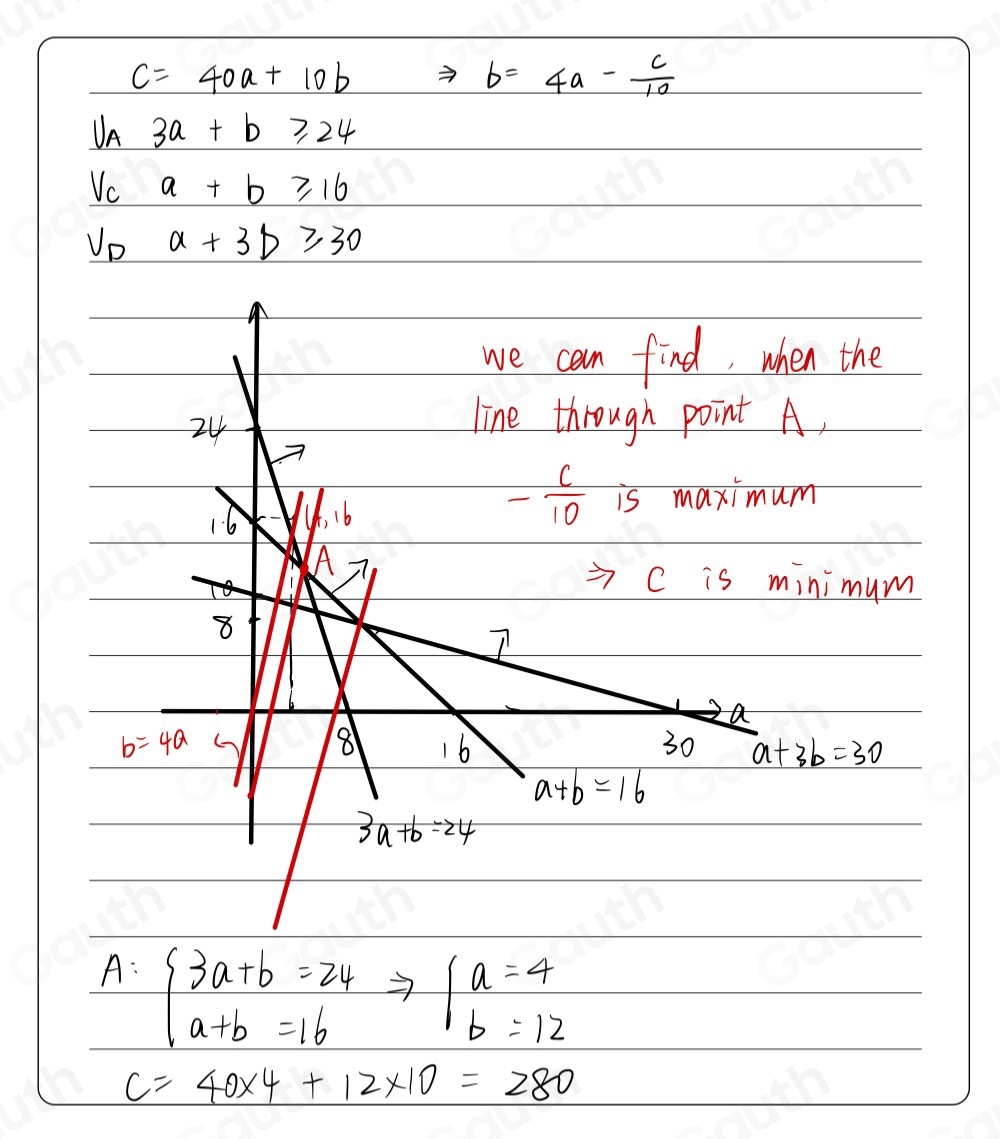 C = 40a + 10b ⇒ b = 4a - c/10
VA 3a + b ≥ 24
VC a + b ≥ 16
VD a + 3b ≥ 30
we can find, when the
line through point A,
- c/10 is maximum
⇒ C is minimum
24
16
4,16
A
10
8
b = 4a
8
16
30
a
a+3b=30
a+b=16
3a+b=24
A: { 3a+b = 24 ⇒ { a = 4
a+b = 16 b = 12
C = 40×4 + 12×10 = 280
Gauth